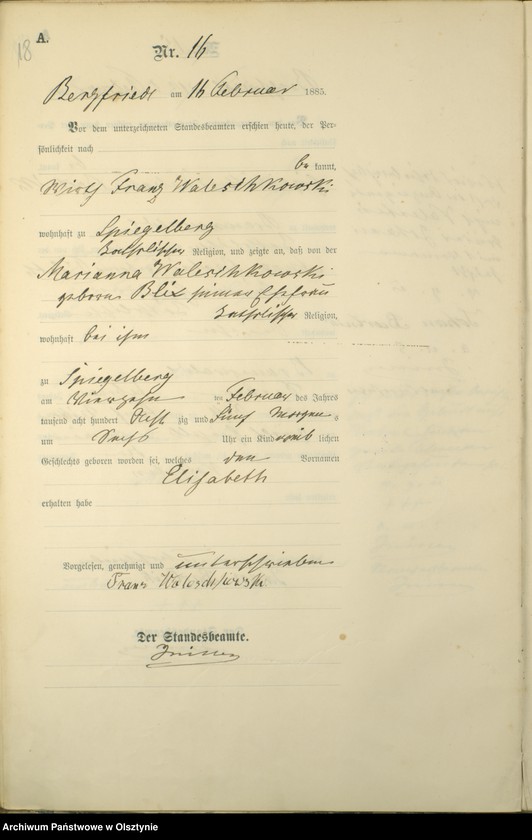 18
A.
Nr. 16
Bergfriede am 16 Februar 1885.
Vor dem unterzeichneten Standesbeamten erschien heute, der Per-
sönlichkeit nach
be kannt,
Wirth Franz Waleschkowski
wohnhaft zu Spiegelberg
katholischer Religion, und zeigte an, daß von der
Marianna Waleschkowski
geborne Blix seiner Ehefrau
katholischer Religion,
wohnhaft bei ihm
zu Spiegelberg
am Vierzehn ten Februar des Jahres
tausend acht hundert Acht zig und Fünf Morgens
um Sechs Uhr ein Kind weib lichen
Geschlechts geboren worden sei, welches den Vornamen
Elisabeth
erhalten habe
Vorgelesen, genehmigt und unterschrieben
Franz Waleschkowski
Der Standesbeamte.
Archiwum Państwowe w Olsztynie